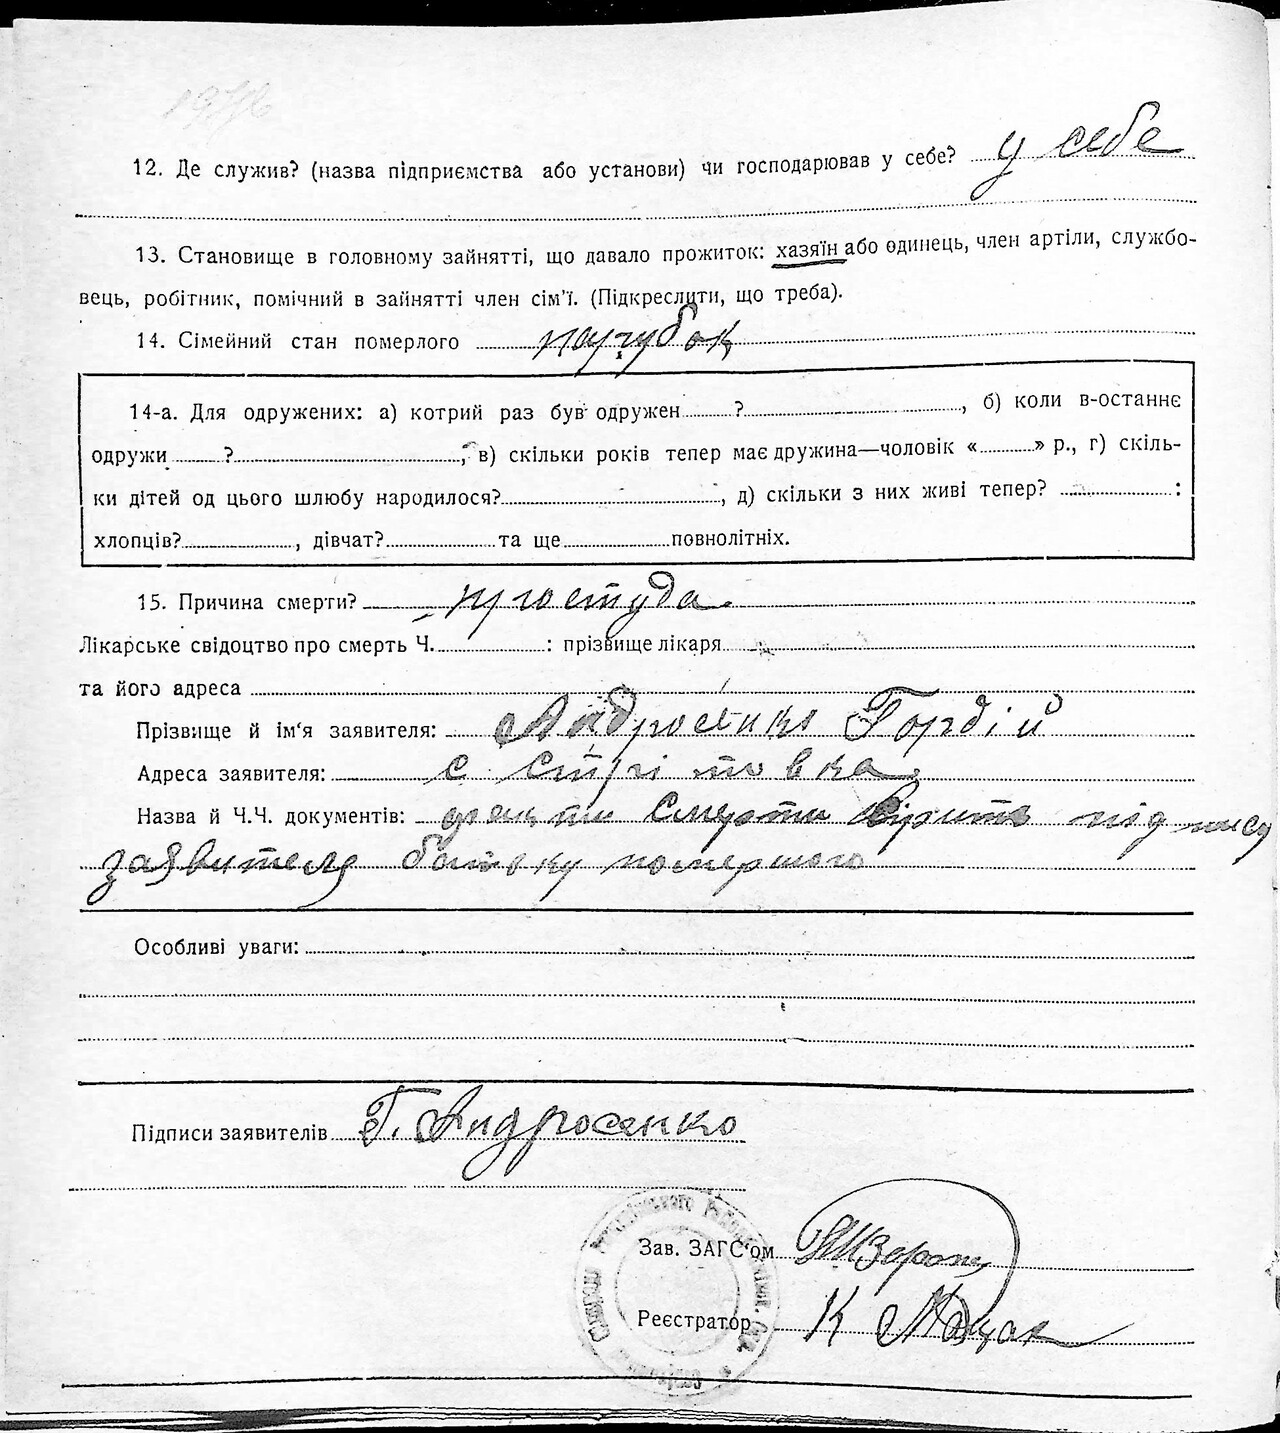 12. Де служив? (назва підприємства або установи) чи господарював у себе? у себе
13. Становище в головному зайнятті, що давало прожиток: хазяїн або одинець, член артіли, службо-
вець, робітник, помічний в зайнятті член сім'ї. (Підкреслити, що треба).
14. Сімейний стан померлого парубок
14-а. Для одружених: а) котрий раз був одружен ? , б) коли в-останнє
одружи ? , в) скільки років тепер має дружина—чоловік « » р., г) скіль-
ки дітей од цього шлюбу народилося? , д) скільки з них живі тепер? :
хлопців? , дівчат? та ще повнолітніх.
15. Причина смерти? простуда
Лікарське свідоцтво про смерть Ч. : прізвище лікаря
та його адреса
Прізвище й ім'я заявителя: Андросенко Гордій
Адреса заявителя: с Стрітовка
Назва й Ч.Ч. документів: смерти підпису
заявителя батьку помершого
Особливі уваги:
Підписи заявителів Г. Андросенко
Зав. ЗАГС'ом
Реєстратор К